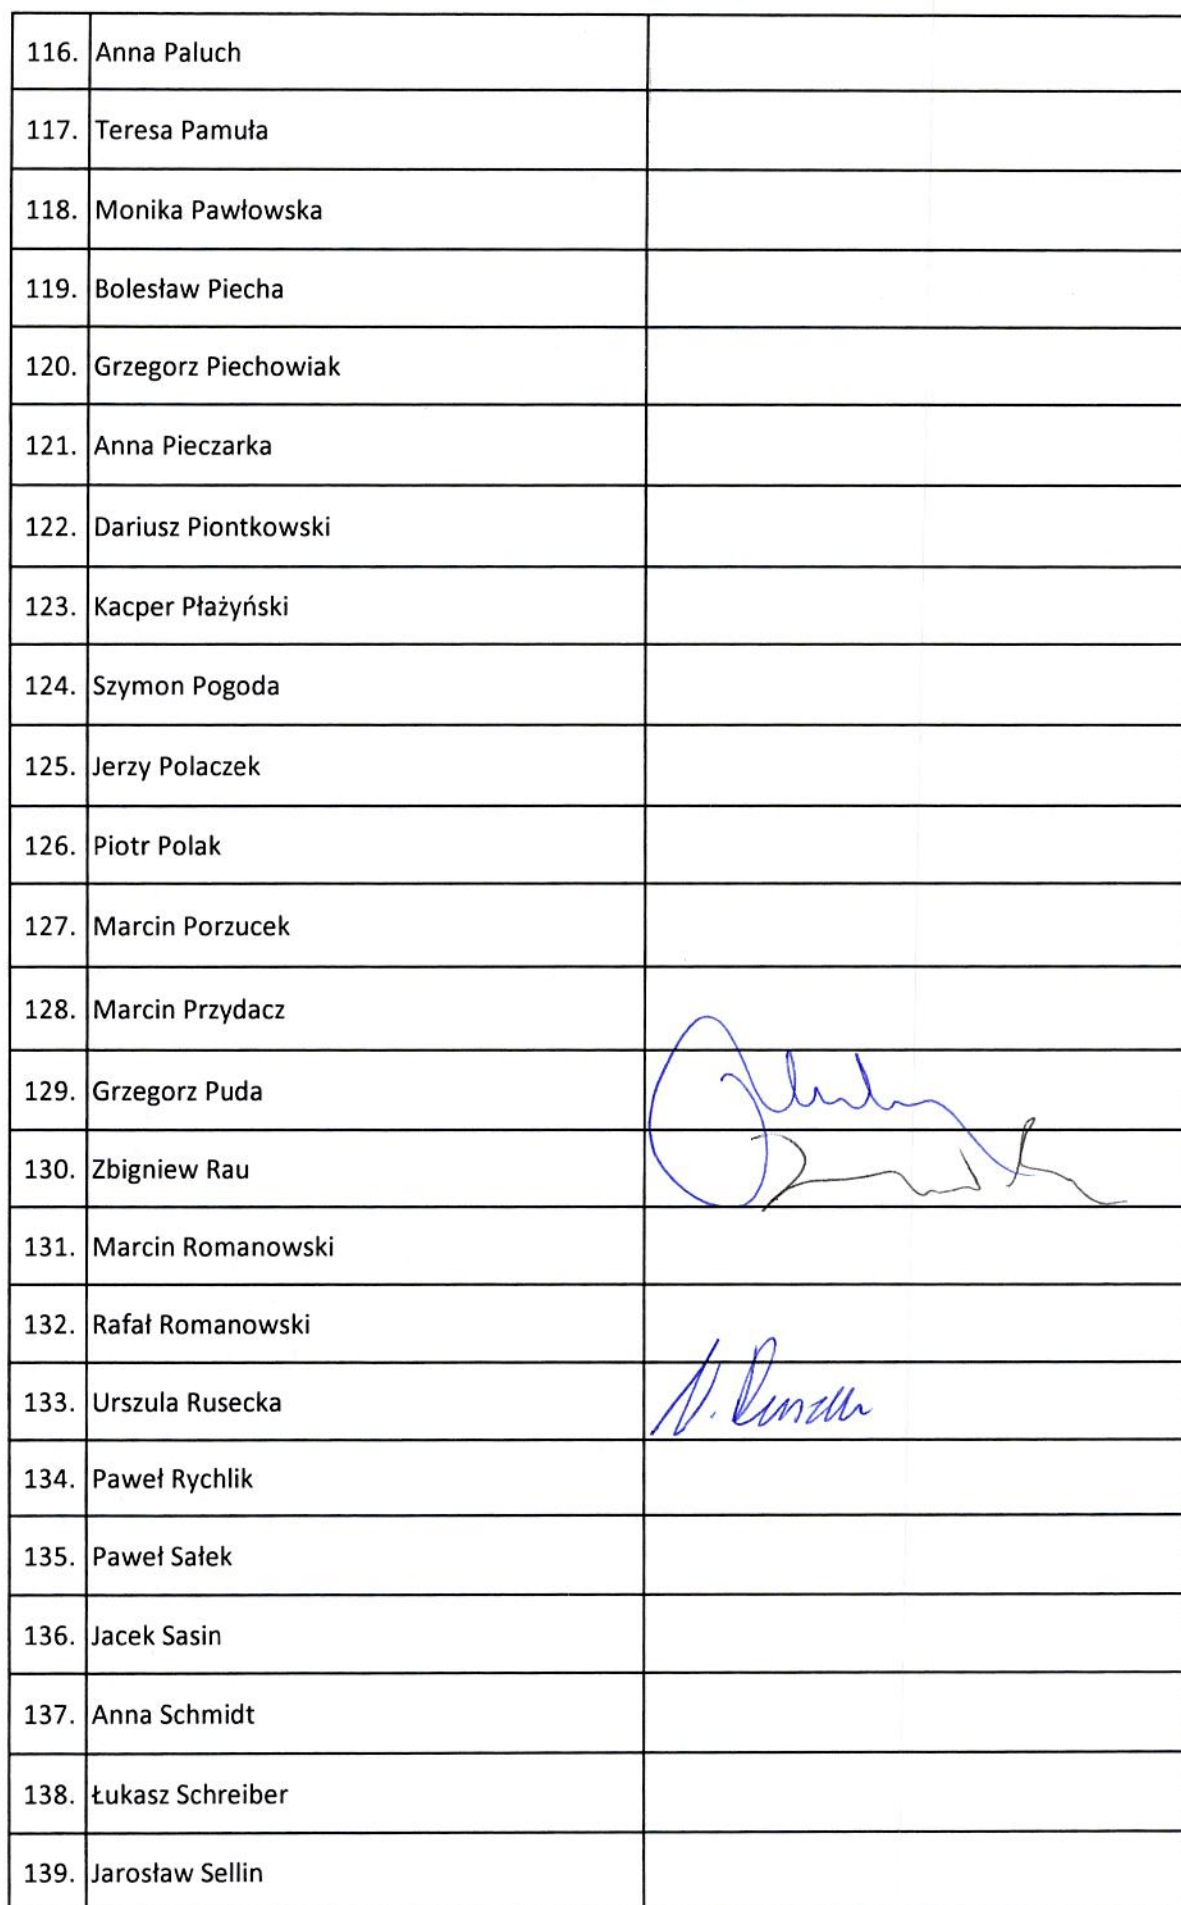 116. Anna Paluch
117. Teresa Pamuła
118. Monika Pawłowska
119. Bolesław Piecha
120. Grzegorz Piechowiak
121. Anna Pieczarka
122. Dariusz Piontkowski
123. Kacper Płażyński
124. Szymon Pogoda
125. Jerzy Polaczek
126. Piotr Polak
127. Marcin Porzucek
128. Marcin Przydacz
129. Grzegorz Puda
130. Zbigniew Rau
131. Marcin Romanowski
132. Rafał Romanowski
133. Urszula Rusecka
134. Paweł Rychlik
135. Paweł Sałek
136. Jacek Sasin
137. Anna Schmidt
138. Łukasz Schreiber
139. Jarosław Sellin